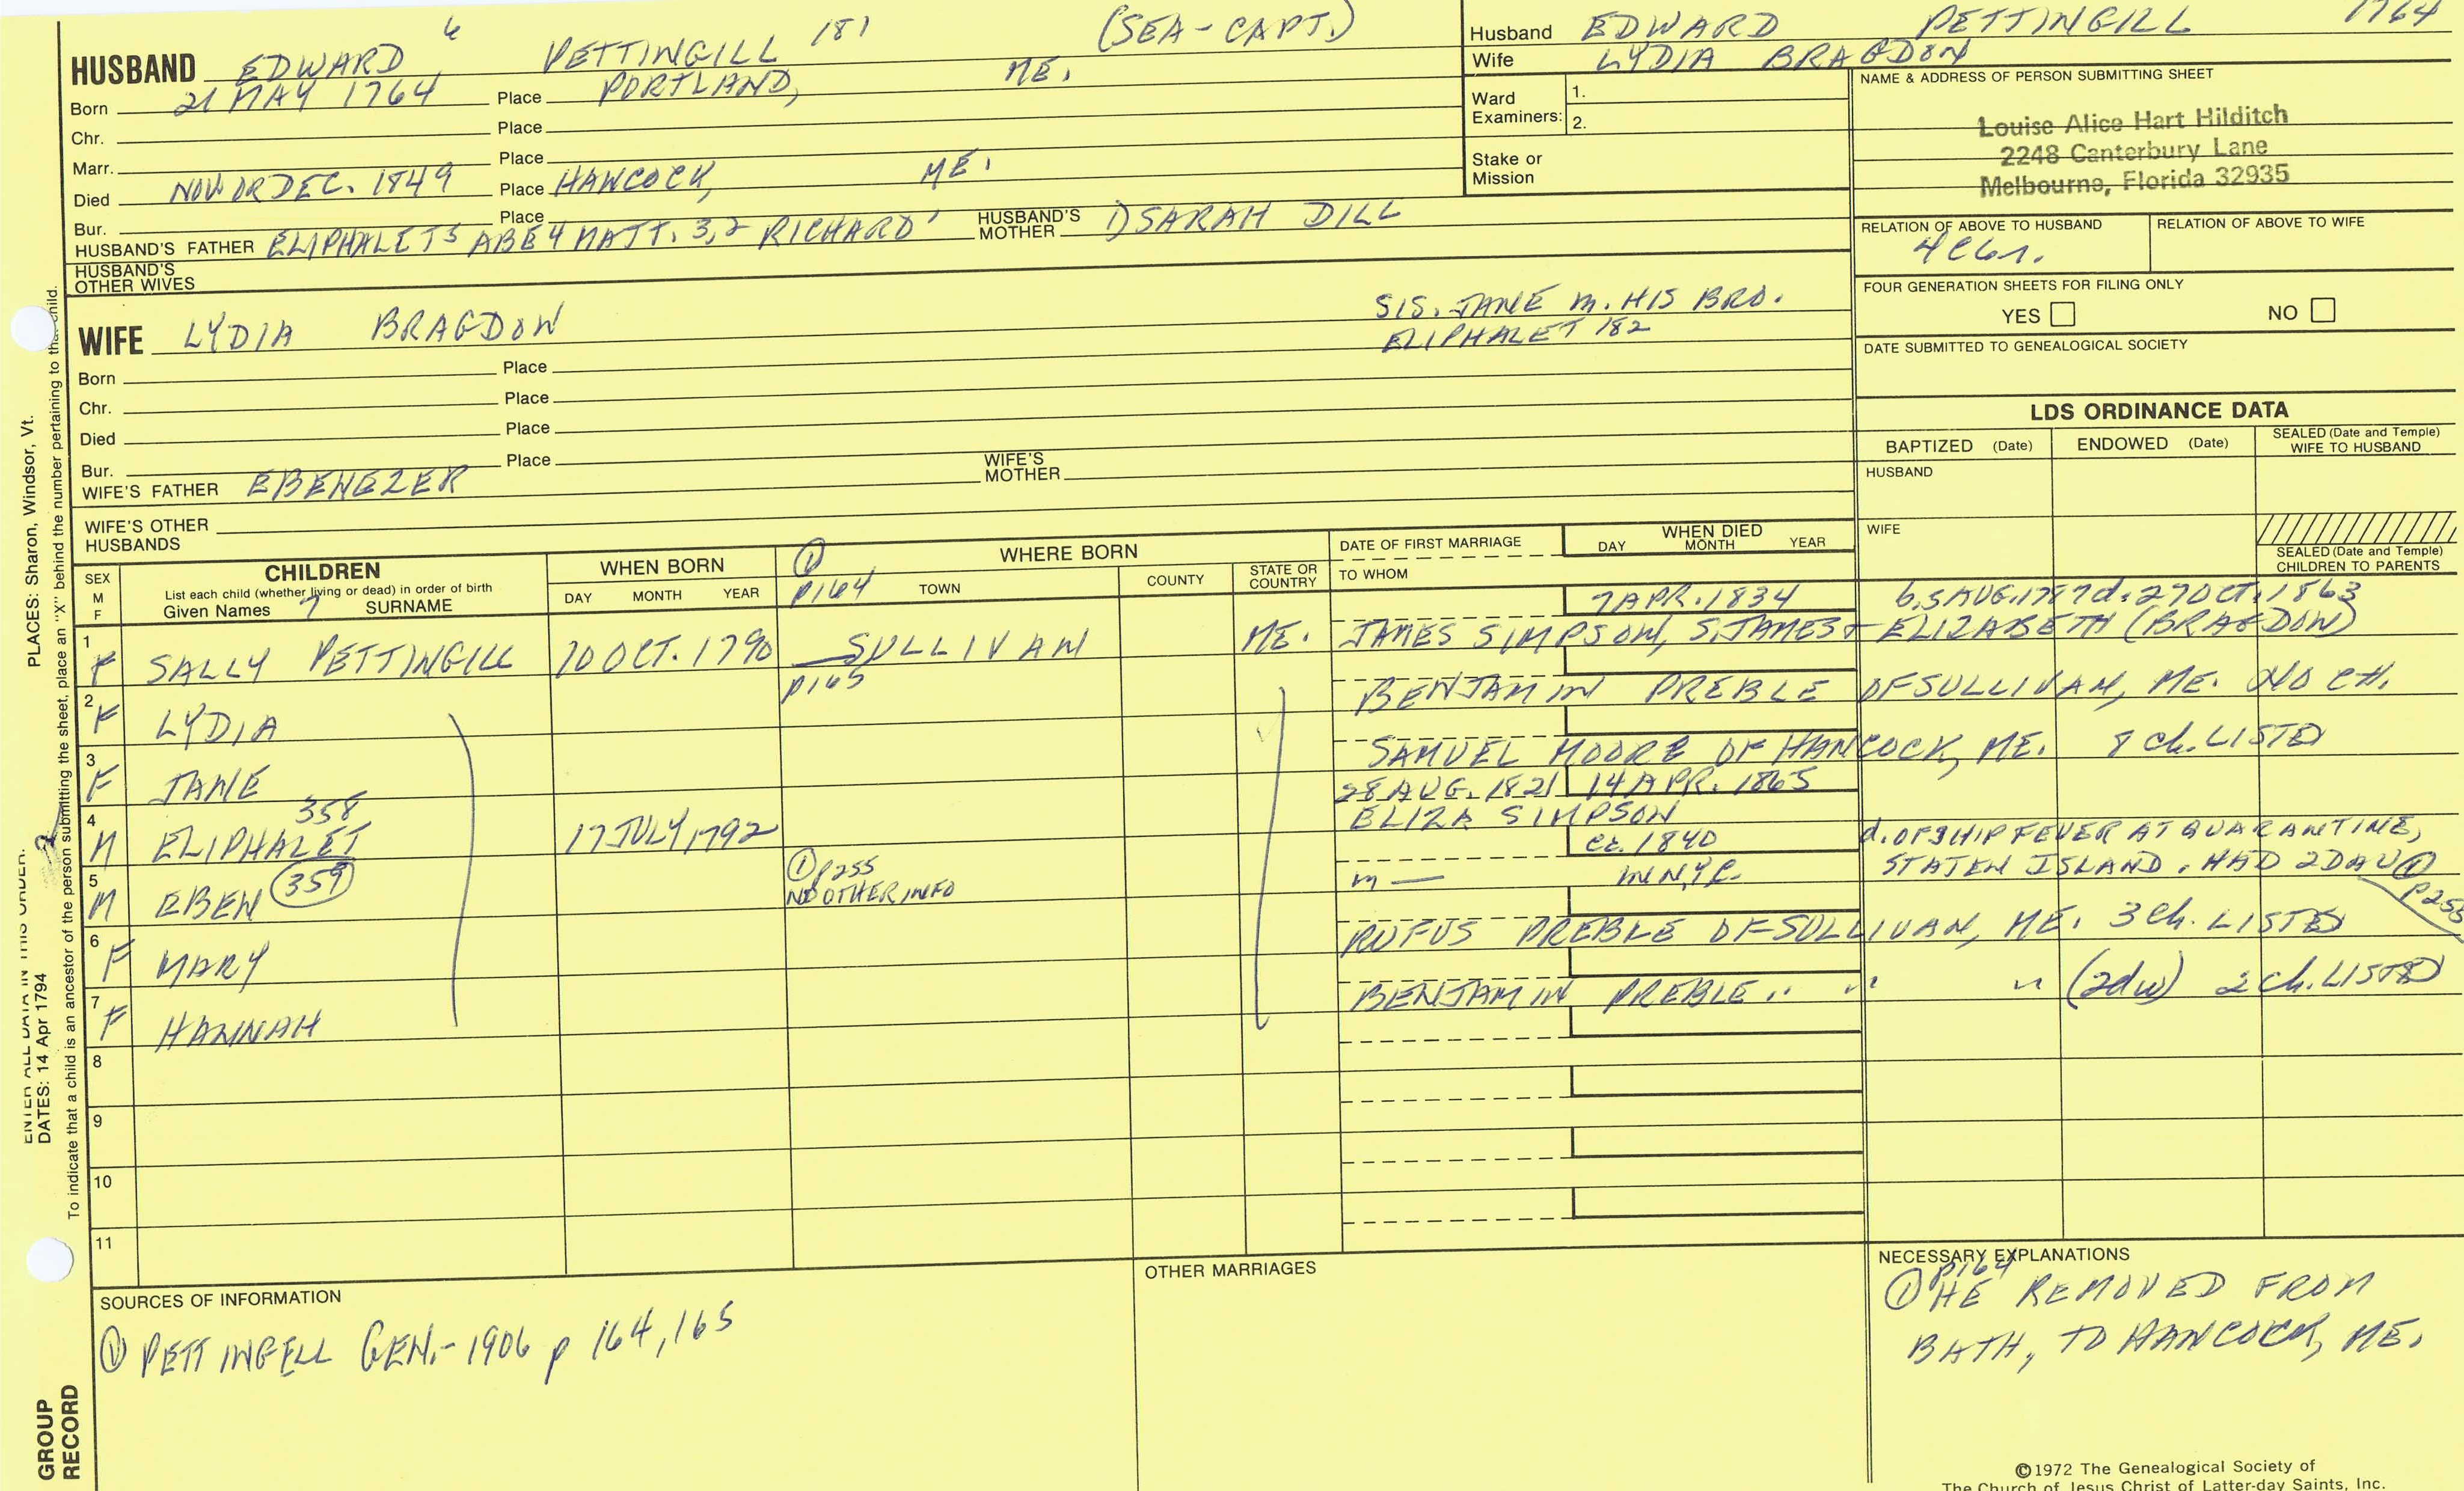 HUSBAND EDWARD 6 PETTINGILL 181 (SEA-CAPT.)
Born 21 MAY 1764 Place PORTLAND, ME.
Chr. Place
Marr. Place
Died NOV OR DEC. 1849 Place HANCOCK, ME.
Bur. Place
HUSBAND'S FATHER ELIPHALET 5 ABE 4 MATT. 3,2 RICHARD 1 HUSBAND'S MOTHER 1) SARAH DILL
HUSBAND'S OTHER WIVES
Husband EDWARD PETTINGILL 1764
Wife LYDIA BRAGDON
Ward Examiners: 1.
2.
Stake or Mission
NAME & ADDRESS OF PERSON SUBMITTING SHEET
Louise Alice Hart Hilditch
2248 Canterbury Lane
Melbourne, Florida 32935
RELATION OF ABOVE TO HUSBAND RELATION OF ABOVE TO WIFE
4C6r.
FOUR GENERATION SHEETS FOR FILING ONLY
YES NO
DATE SUBMITTED TO GENEALOGICAL SOCIETY
WIFE LYDIA BRAGDON
SIS. JANE m. HIS BRO.
ELIPHALET 182
Born Place
Chr. Place
Died Place
Bur. Place
WIFE'S FATHER EBENEZER WIFE'S MOTHER
WIFE'S OTHER HUSBANDS
LDS ORDINANCE DATA
BAPTIZED (Date) ENDOWED (Date) SEALED (Date and Temple) WIFE TO HUSBAND
HUSBAND
WIFE
SEALED (Date and Temple) CHILDREN TO PARENTS
SEX M F
CHILDREN
List each child (whether living or dead) in order of birth
Given Names 7 SURNAME
WHEN BORN
DAY MONTH YEAR
① p164
WHERE BORN
TOWN COUNTY STATE OR COUNTRY
DATE OF FIRST MARRIAGE
TO WHOM
WHEN DIED
DAY MONTH YEAR
7 APR. 1834 b. 5 AUG. 1787 d. 27 OCT. 1863
1 F SALLY PETTINGILL 10 OCT. 1790 SULLIVAN ME. JAMES SIMPSON, S. JAMES + ELIZABETH (BRAGDON)
p165
2 F LYDIA BENJAMIN PREBLE OF SULLIVAN, ME. NO CH.
3 F JANE SAMUEL MOORE OF HANCOCK, ME. 8 ch. LISTED
28 AUG. 1821 14 APR. 1865
4 M ELIPHALET 358 17 JULY, 1792 ELIZA SIMPSON
ca. 1840 d. OF SHIP FEVER AT QUARANTINE,
5 M EBEN 359 ① p255 NO OTHER INFO m — IN N.Y.C. STATEN ISLAND. HAD 2 DAU ① p255
6 F MARY RUFUS PREBLE OF SULLIVAN, ME. 3 ch. LISTED
7 F HANNAH BENJAMIN PREBLE " " " (2d w) 2 ch. LISTED
8
9
10
11
SOURCES OF INFORMATION
① PETTINGELL GEN.-1906 p 164,165
OTHER MARRIAGES
NECESSARY EXPLANATIONS
① p164 HE REMOVED FROM
BATH, TO HANCOCK, ME.
©1972 The Genealogical Society of
The Church of Jesus Christ of Latter-day Saints, Inc.
PLACES: Sharon, Windsor, Vt.
ENTER ALL DATA IN THIS ORDER:
DATES: 14 Apr 1794
To indicate that a child is an ancestor of the person submitting the sheet, place an "X" behind the number pertaining to the child.
GROUP
RECORD